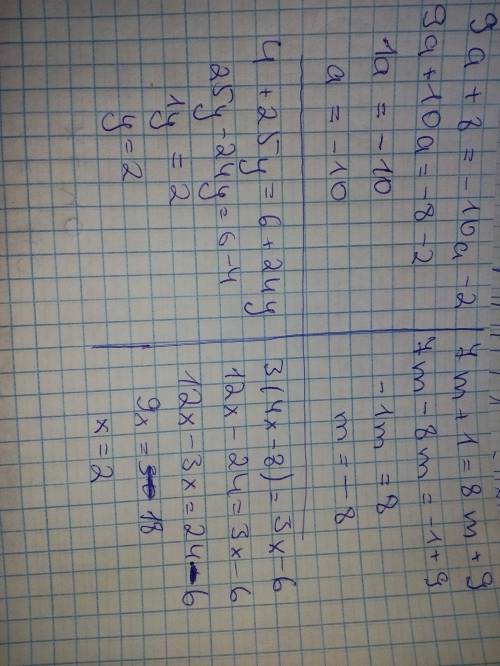 9a + 8 = -10a - 2
9a + 10a = -8 - 2
1a = -10
a = -10
7m + 1 = 8m + 9
7m - 8m = -1 + 9
-1m = 8
m = -8
4 + 25y = 6 + 24y
25y - 24y = 6 - 4
1y = 2
y = 2
3(4x - 8) = 3x - 6
12x - 24 = 3x - 6
12x - 3x = 24 - 6
9x = 18
x = 2